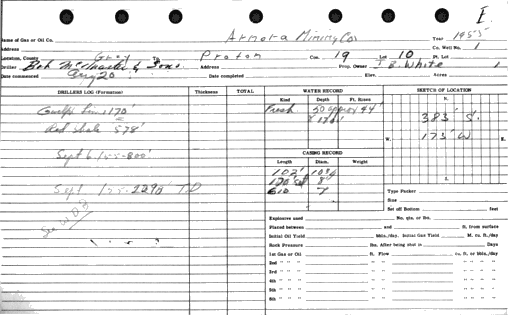 E.
Name of Gas or Oil Co. Armora Mining Co. Year 1955
Address Co. Well No. 1
Location, County Grey Proton Con. 19 Lot 10 Pt. Lot
Driller Bob McMaster & Sons. Address Prop. Owner J.B. White
Date commenced Aug 20 Date completed Elev. Acres
DRILLERS LOG (Formation) Thickness TOTAL WATER RECORD SKETCH OF LOCATION
Kind Depth Ft. Rises N.
Guelph Lime 170' Fresh 50 approx 44' 383' S.
Red shale 578' & 170' 173' W. E.
Sept 6/55-800' CASING RECORD
Length Diam. Weight
102' 10¾
170' set 8"
Sept 1/55-2298' T.D 610 7 S.
Type Packer
Size
See W.D.B Set off Bottom feet
Explosives used No. qts. or lbs.
Placed between and ft. from surface
Initial Oil Yield Bbls./day. Initial Gas Yield M. cu. ft./day
Rock Pressure lbs. After being shut in Days
1st Gas or Oil ft. Flow cu. ft. or bbls./day
2nd " " " " " " " "
3rd " " " " " " " "
4th " " " " " " " "
5th " " " " " " " "
6th " " " " " " " "